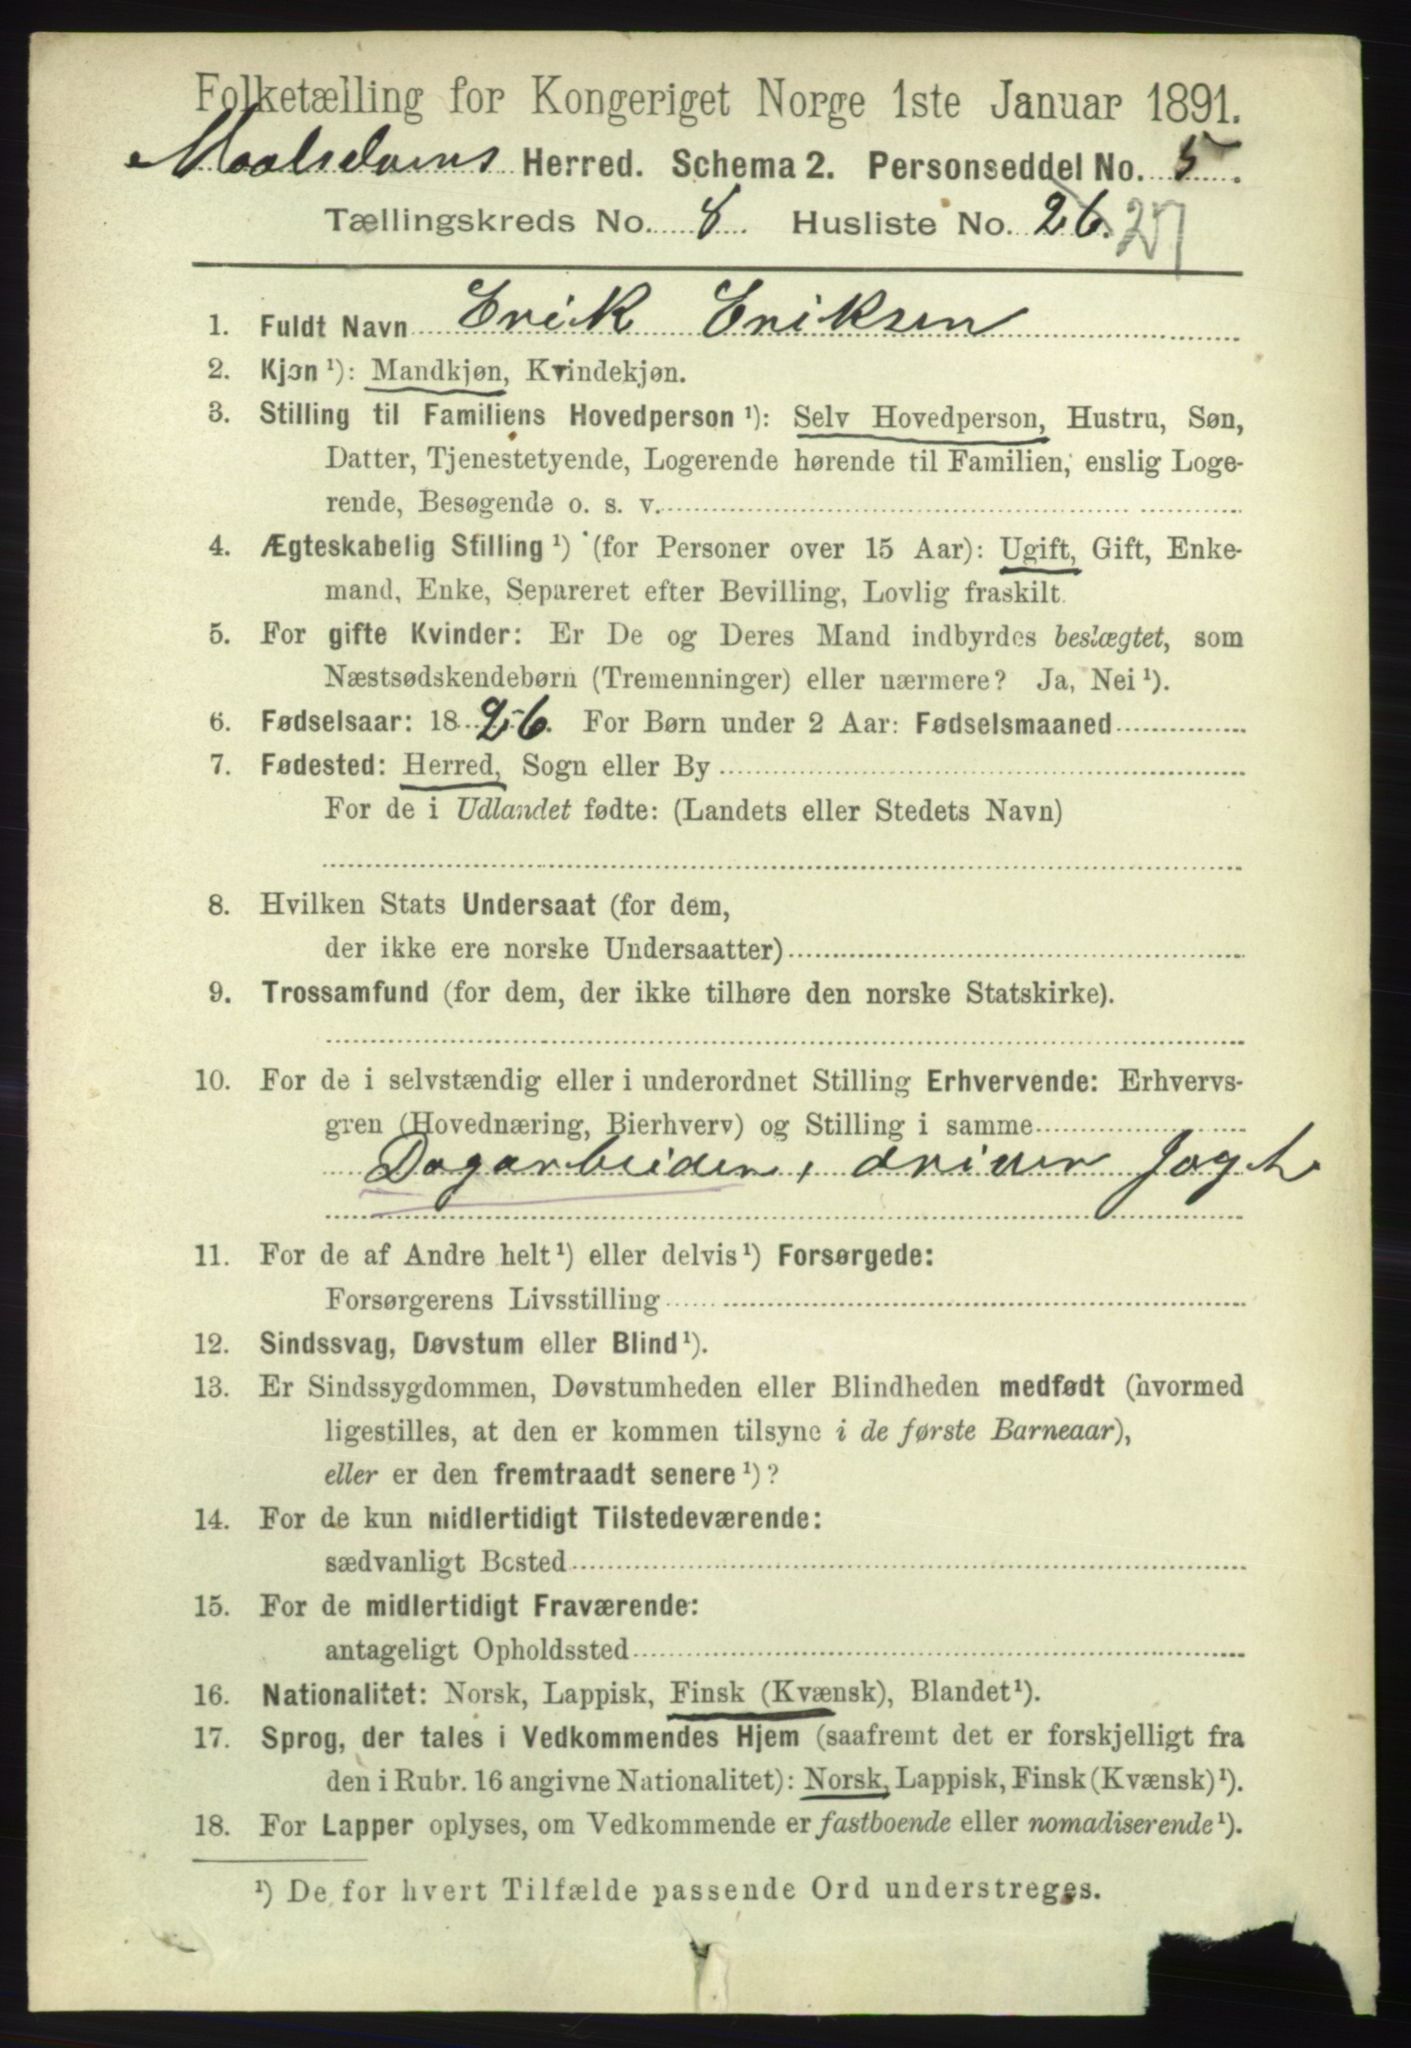 Folketælling for Kongeriget Norge 1ste Januar 1891.
Maalselvens Herred. Schema 2. Personseddel No. 5.
Tællingskreds No. 8. Husliste No. 26. 27
1. Fuldt Navn Erik Eriksen
2. Kjøn ¹): Mandkjøn, Kvindekjøn.
3. Stilling til Familiens Hovedperson ¹): Selv Hovedperson, Hustru, Søn,
Datter, Tjenestetyende, Logerende hørende til Familien, enslig Loge-
rende, Besøgende o. s. v.
4. Ægteskabelig Stilling ¹) (for Personer over 15 Aar): Ugift, Gift, Enke-
mand, Enke, Separeret efter Bevilling, Lovlig fraskilt.
5. For gifte Kvinder: Er De og Deres Mand indbyrdes beslægtet, som
Næstsødskendebørn (Tremenninger) eller nærmere? Ja, Nei ¹).
6. Fødselsaar: 1826. For Børn under 2 Aar: Fødselsmaaned
7. Fødested: Herred, Sogn eller By
For de i Udlandet fødte: (Landets eller Stedets Navn)
8. Hvilken Stats Undersaat (for dem,
der ikke ere norske Undersaatter)
9. Trossamfund (for dem, der ikke tilhøre den norske Statskirke).
10. For de i selvstændig eller i underordnet Stilling Erhvervende: Erhvervs-
gren (Hovednæring, Bierhverv) og Stilling i samme
Dagarbeider, driver Jagt
11. For de af Andre helt ¹) eller delvis ¹) Forsørgede:
Forsørgerens Livsstilling
12. Sindssvag, Døvstum eller Blind ¹).
13. Er Sindssygdommen, Døvstumheden eller Blindheden medfødt (hvormed
ligestilles, at den er kommen tilsyne i de første Barneaar),
eller er den fremtraadt senere ¹)?
14. For de kun midlertidigt Tilstedeværende:
sædvanligt Bosted
15. For de midlertidigt Fraværende:
antageligt Opholdssted
16. Nationalitet: Norsk, Lappisk, Finsk (Kvænsk), Blandet ¹).
17. Sprog, der tales i Vedkommendes Hjem (saafremt det er forskjelligt fra
den i Rubr. 16 angivne Nationalitet): Norsk, Lappisk, Finsk (Kvænsk) ¹).
18. For Lapper oplyses, om Vedkommende er fastboende eller nomadiserende ¹).
¹) De for hvert Tilfælde passende Ord understreges.